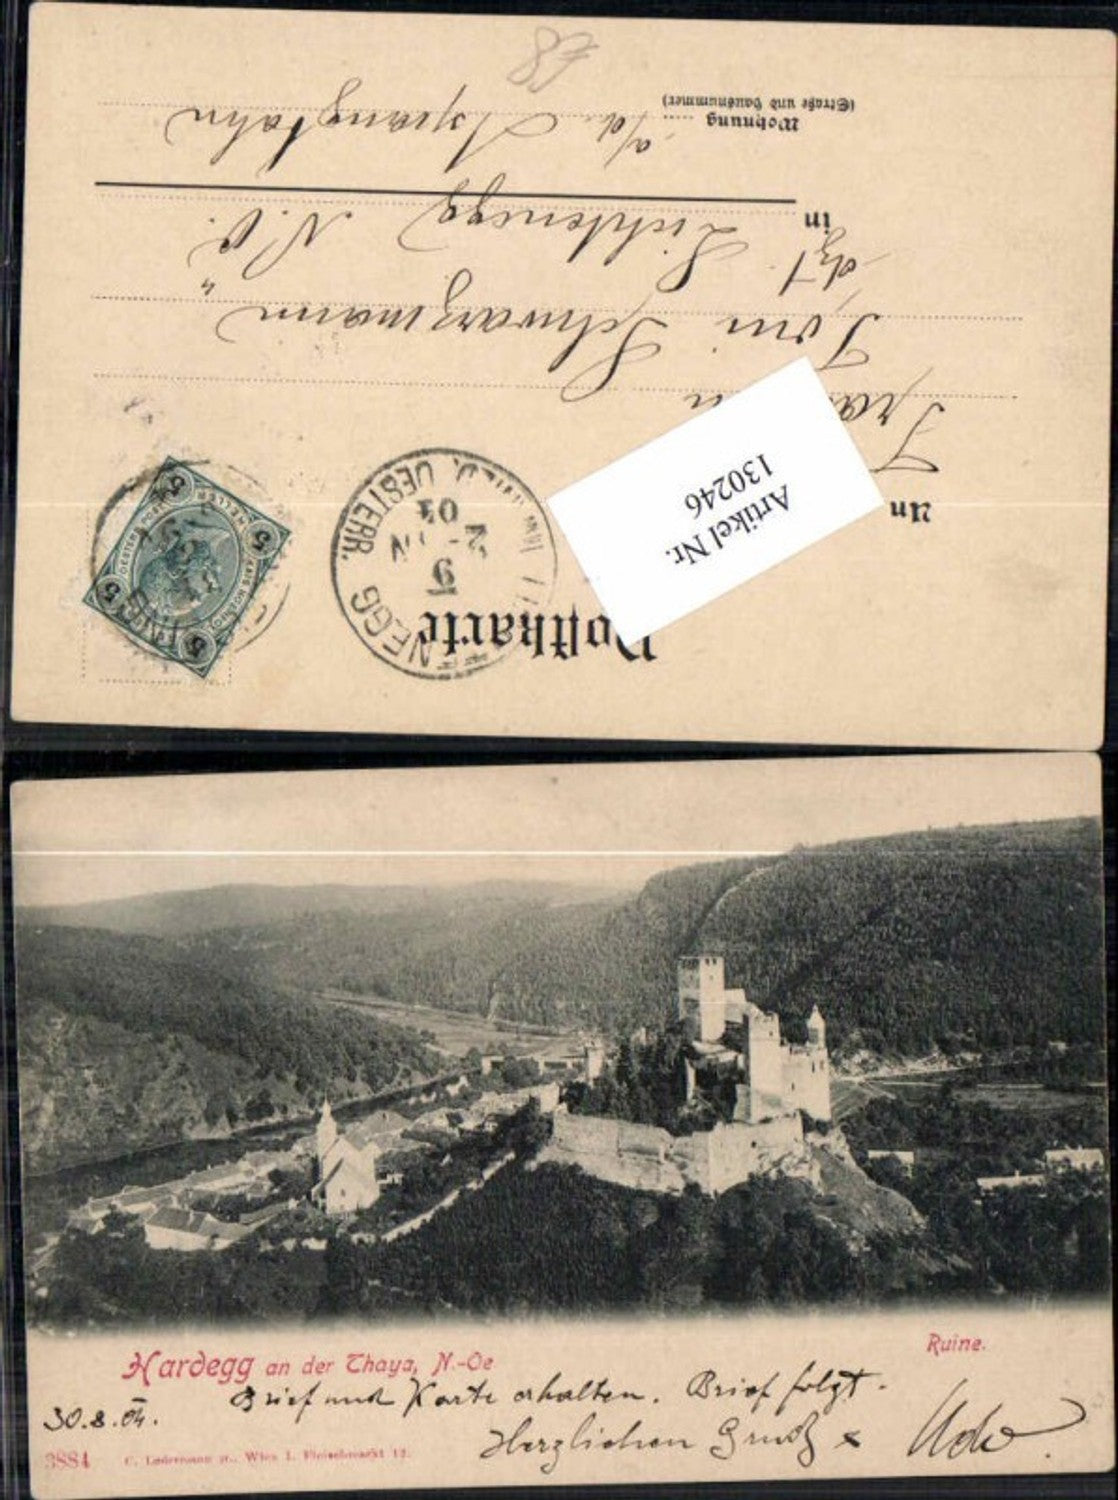 Postkarte
An
Frau
Toni Schwarzmann
dzt. Lichtenegg N. Ö.
in
a/d. Aspangbahn
Wohnung
(Straße und Hausnummer)
Artikel Nr.
130246
NEGG
9
2-
04
OESTERR.
5
5
5
5
HELLER
Hardegg an der Thaya, N.-Oe
Ruine.
30.8.04.
Brief und Karte erhalten. Brief folgt.
Herzlichen Gruß
3884
C. Ledermann jr., Wien I. Fleischmarkt 12.